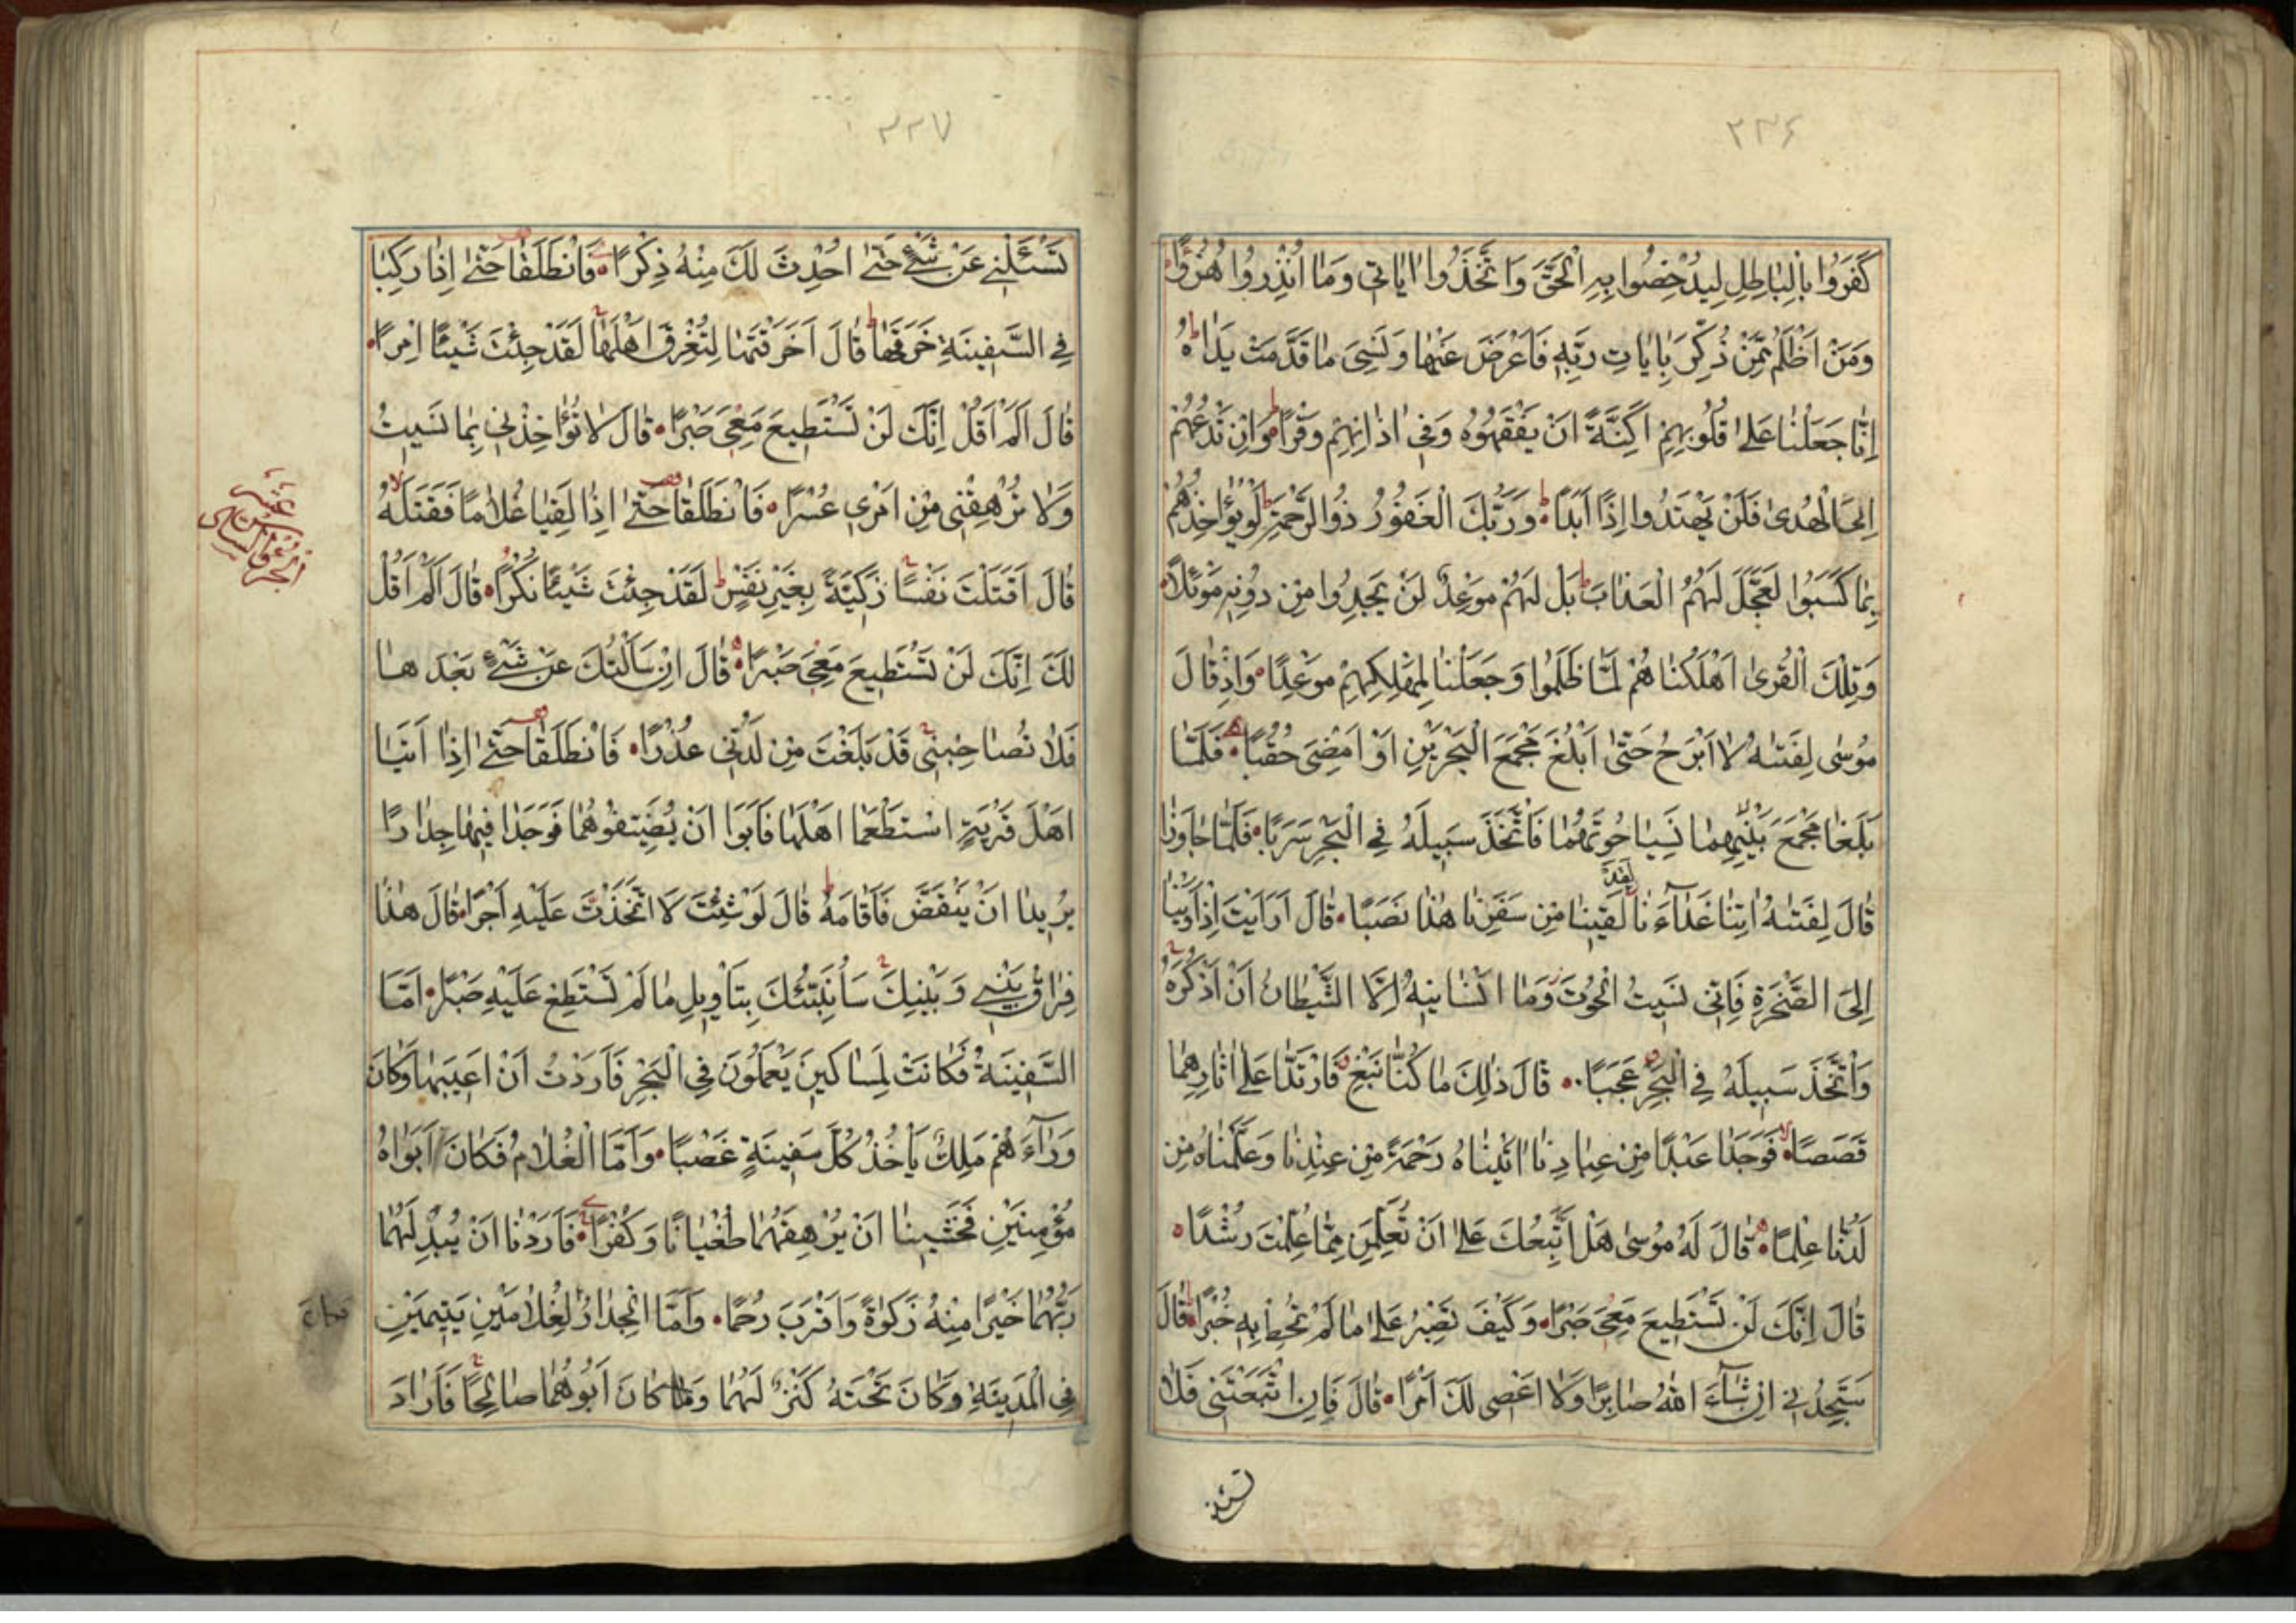 ٢٣٦
كَفَرُوا بِالْبَاطِلِ لِيُدْحِضُوا بِهِ الْحَقَّ وَاتَّخَذُوا ايَاتِي وَمَا اُنْذِرُوا هُزُوًا
وَمَنْ اَظْلَمُ مِمَّنْ ذُكِّرَ بِايَاتِ رَبِّهِ فَاَعْرَضَ عَنْهَا وَنَسِيَ مَا قَدَّمَتْ يَدَاهُ
اِنَّا جَعَلْنَا عَلَى قُلُوبِهِمْ اَكِنَّةً اَنْ يَفْقَهُوهُ وَفِي اذَانِهِمْ وَقْرًا وَاِنْ تَدْعُهُمْ
اِلَى الْهُدَى فَلَنْ يَهْتَدُوا اِذًا اَبَدًا وَرَبُّكَ الْغَفُورُ ذُوالرَّحْمَةِ لَوْ يُؤَاخِذُهُمْ
بِمَا كَسَبُوا لَعَجَّلَ لَهُمُ الْعَذَابَ بَلْ لَهُمْ مَوْعِدٌ لَنْ يَجِدُوا مِنْ دُونِهِ مَوْئِلًا
وَتِلْكَ الْقُرَى اَهْلَكْنَاهُمْ لَمَّا ظَلَمُوا وَجَعَلْنَا لِمَهْلِكِهِمْ مَوْعِدًا وَاِذْ قَالَ
مُوسَى لِفَتَيهُ لَا اَبْرَحُ حَتَّى اَبْلُغَ مَجْمَعَ الْبَحْرَيْنِ اَوْ اَمْضِيَ حُقُبًا فَلَمَّا
بَلَغَا مَجْمَعَ بَيْنِهِمَا نَسِيَا حُوتَهُمَا فَاتَّخَذَ سَبِيلَهُ فِي الْبَحْرِ سَرَبًا فَلَمَّا جَاوَزَا
قَالَ لِفَتَيهُ اتِنَا غَدَآءَنَا لَقَدْ لَقِينَا مِنْ سَفَرِنَا هَذَا نَصَبًا قَالَ اَرَاَيْتَ اِذْ اَوَيْنَا
اِلَى الصَّخْرَةِ فَاِنِّي نَسِيتُ الْحُوتَ وَمَا اَنْسَانِيهُ اِلَّا الشَّيْطَانُ اَنْ اَذْكُرَهُ
وَاتَّخَذَ سَبِيلَهُ فِي الْبَحْرِ عَجَبًا قَالَ ذَلِكَ مَا كُنَّا نَبْغِ فَارْتَدَّا عَلَى اثَارِهِمَا
قَصَصًا فَوَجَدَا عَبْدًا مِنْ عِبَادِنَا اتَيْنَاهُ رَحْمَةً مِنْ عِنْدِنَا وَعَلَّمْنَاهُ مِنْ
لَدُنَّا عِلْمًا قَالَ لَهُ مُوسَى هَلْ اَتَّبِعُكَ عَلَى اَنْ تُعَلِّمَنِ مِمَّا عُلِّمْتَ رُشْدًا
قَالَ اِنَّكَ لَنْ تَسْتَطِيعَ مَعِيَ صَبْرًا وَكَيْفَ تَصْبِرُ عَلَى مَا لَمْ تُحِطْ بِهِ خُبْرًا قَالَ
سَتَجِدُنِي اِنْ شَآءَ اللهُ صَابِرًا وَلَا اَعْصِي لَكَ اَمْرًا قَالَ فَاِنِ اتَّبَعْتَنِي فَلَا
تسئلني
٢٣٧
تَسْئَلْنِي عَنْ شَيْءٍ حَتَّى اُحْدِثَ لَكَ مِنْهُ ذِكْرًا فَانْطَلَقَا حَتَّى اِذَا رَكِبَا
فِي السَّفِينَةِ خَرَقَهَا قَالَ اَخَرَقْتَهَا لِتُغْرِقَ اَهْلَهَا لَقَدْ جِئْتَ شَيْئًا اِمْرًا
قَالَ اَلَمْ اَقُلْ اِنَّكَ لَنْ تَسْتَطِيعَ مَعِيَ صَبْرًا قَالَ لَا تُؤَاخِذْنِي بِمَا نَسِيتُ
وَلَا تُرْهِقْنِي مِنْ اَمْرِي عُسْرًا فَانْطَلَقَا حَتَّى اِذَا لَقِيَا غُلَامًا فَقَتَلَهُ
قَالَ اَقَتَلْتَ نَفْسًا زَكِيَّةً بِغَيْرِ نَفْسٍ لَقَدْ جِئْتَ شَيْئًا نُكْرًا قَالَ اَلَمْ اَقُلْ
لَكَ اِنَّكَ لَنْ تَسْتَطِيعَ مَعِيَ صَبْرًا قَالَ اِنْ سَاَلْتُكَ عَنْ شَيْءٍ بَعْدَهَا
فَلَا تُصَاحِبْنِي قَدْ بَلَغْتَ مِنْ لَدُنِّي عُذْرًا فَانْطَلَقَا حَتَّى اِذَا اَتَيَا
اَهْلَ قَرْيَةٍ اسْتَطْعَمَا اَهْلَهَا فَاَبَوْا اَنْ يُضَيِّفُوهُمَا فَوَجَدَا فِيهَا جِدَارًا
يُرِيدُ اَنْ يَنْقَضَّ فَاَقَامَهُ قَالَ لَوْ شِئْتَ لَاتَّخَذْتَ عَلَيْهِ اَجْرًا قَالَ هَذَا
فِرَاقُ بَيْنِي وَبَيْنِكَ سَاُنَبِّئُكَ بِتَاْوِيلِ مَا لَمْ تَسْتَطِعْ عَلَيْهِ صَبْرًا اَمَّا
السَّفِينَةُ فَكَانَتْ لِمَسَاكِينَ يَعْمَلُونَ فِي الْبَحْرِ فَاَرَدْتُ اَنْ اَعِيبَهَا وَكَانَ
وَرَآءَهُمْ مَلِكٌ يَاْخُذُ كُلَّ سَفِينَةٍ غَصْبًا وَاَمَّا الْغُلَامُ فَكَانَ اَبَوَاهُ
مُؤْمِنَيْنِ فَخَشِينَا اَنْ يُرْهِقَهُمَا طُغْيَانًا وَكُفْرًا فَاَرَدْنَا اَنْ يُبْدِلَهُمَا
رَبُّهُمَا خَيْرًا مِنْهُ زَكَوةً وَاَقْرَبَ رُحْمًا وَاَمَّا الْجِدَارُ لِغُلَامَيْنِ يَتِيمَيْنِ
فكان
فِي الْمَدِينَةِ وَكَانَ تَحْتَهُ كَنْزٌ لَهُمَا وَكَانَ اَبُوهُمَا صَالِحًا فَاَرَادَ